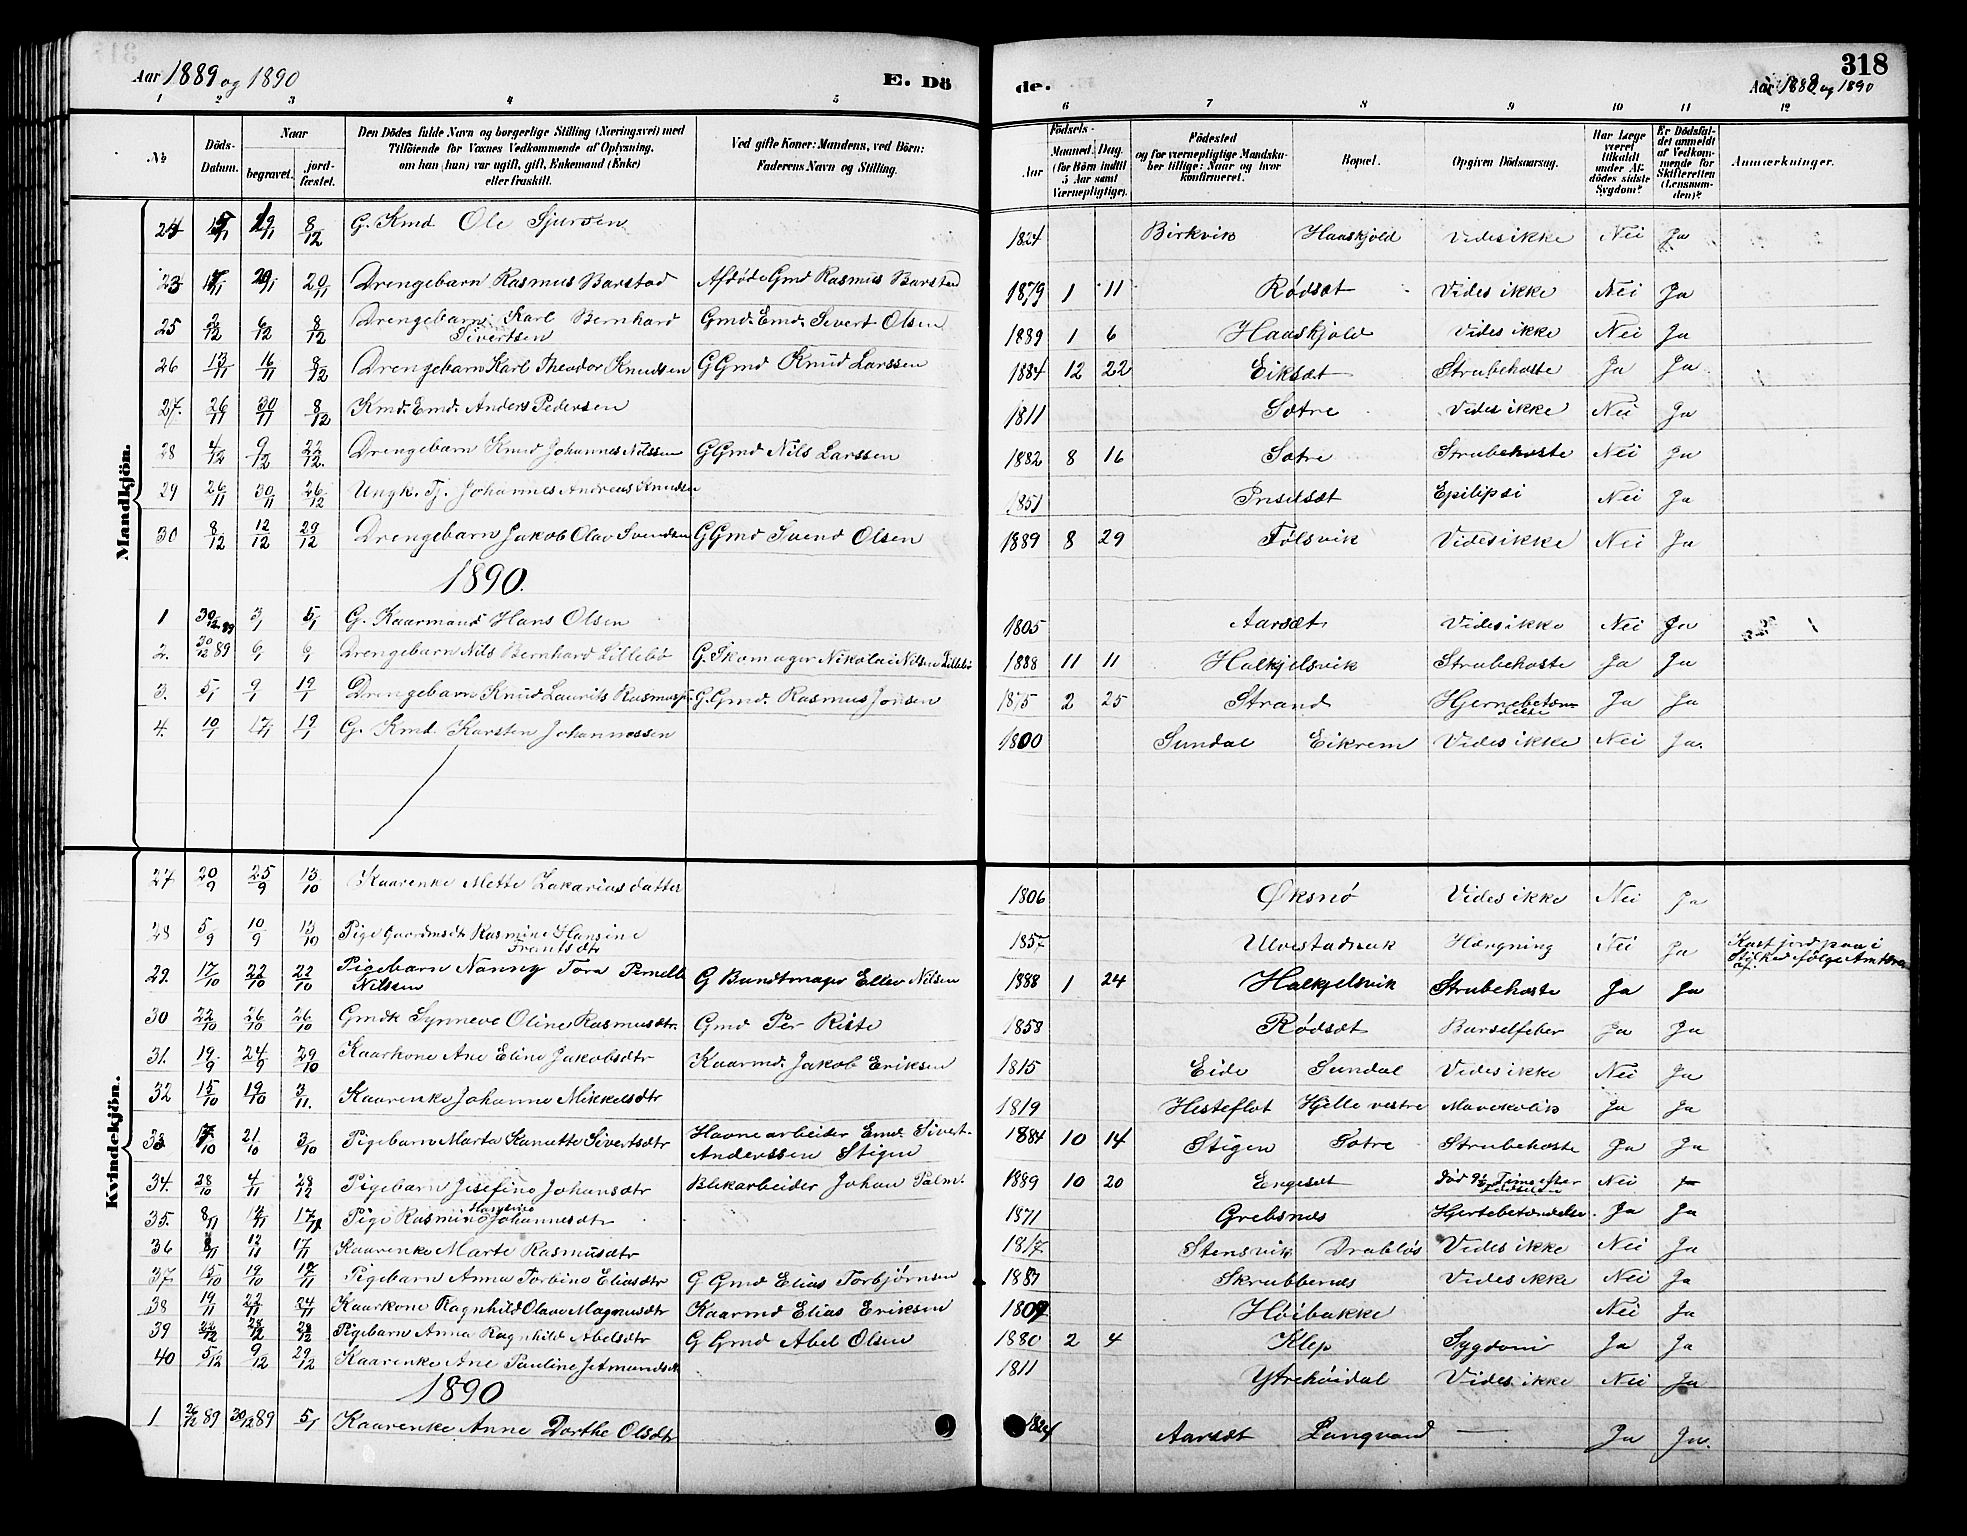 318
Aar 1889 og 1890
E. Dö
de.
Aar 1889 og 1890
1 2 3 4 5
6 7 8 9 10 11 12
№
Döds-Datum.
Naar
begravet.
jord-fæstet.
Den Dödes fulde Navn og borgerlige Stilling (Næringsvei) med
Tilföiende for Voxnes Vedkommende af Oplysning,
om han (hun) var ugift, gift, Enkemand (Enke)
eller fraskilt.
Ved gifte Koner: Mandens, ved Börn:
Faderens Navn og Stilling.
Födsels-
Aar
Maaned. Dag.
(for Börn indtil
5 Aar samt
Værnepligtige).
Födested
og for værnepligtige Mandska-
ber tillige: Naar og hvor
konfirmeret.
Bopæl.
Opgiven Dödsaarsag.
Har Læge
været
tilkaldt
under Af-
dödes sidste
Sygdom?
Er Dödsfal-
det anmeldt
af Vedkom-
mende for
Skifteretten
(Lensman-
den)?
Anmærkninger.
Mandkjön.
24 8/12 G. Kmd Ole Sjursen 1824 Birkvik Haaskjold Vides ikke Nei Ja
23 20/11 Drengebarn Rasmus Barstad Afdøde Gmd Rasmus Barstad 1879 1 11 Rødsæt Vides ikke Nei Ja
25 2/12 6/12 8/12 Drengebarn Karl Bernhard Sivertsen Gmd. Emd. Sivert Olsen 1889 1 6 Haaskjold Vides ikke Nei Ja
26 13/11 16/11 8/12 Drengebarn Karl Theodor Knudsen GGmd Knud Larssen 1884 12 22 Eiksæt Strubehoste Ja Ja
27. 26/11 30/11 8/12 Kmd. Emd. Anders Pedersen 1811 Sætre Vides ikke Nei Ja
28 4/12 9/12 22/12. Drengebarn Knud Johannes Nilssen GGmd Nils Larssen 1882 8 16 Sætre Strubehoste Nei Ja
29 26/11 30/11 26/12 Ungk. Tj. Johannes Andreas Knudsen 1851 Epilipsi Nei Ja
30 8/12 12/12 29/12 Drengebarn Jakob Olav Svendsen GGmd Svend Olsen 1889 8 29 Følsvik Vides ikke Nei Ja
1890.
1 30/12 89 3/1 5/1 G. Kaarmand Hans Olsen 1805 Aarsæt Vides ikke Nei Ja
2. 30/12 89 9/1 9/1 Drengebarn Nils Bernhard Lillebø G. Skomager Nikolai Nilsen Lillebø 1888 11 11 Halkjelsvik Strubehoste Ja Ja
3. 5/1 9/1 19/1 Drengebarn Knud Laurits Rasmuss. G. Gmd. Rasmus Jonsen 1875 2 25 Strand Hjernebetændelse Ja Ja
4. 10/1 17/1 19/1 G. Kmd. Karsten Johannessen 1800 Sundal Eikrem Vides ikke Nei Ja.
Kvindekjön.
27 20/9 25/9 13/10 Kaarenke Mette Zakarias datter 1806 Øksnø Vides ikke Nei Ja
28 5/9 10/9 13/10 Pige Gaardmsdt Rasmine Hansine Frantsdtr 1857 Hængning Nei Ja Kast jord paa i
29. 17/10 22/10 22/10 Pigebarn Nanny Tora Pernelle Nilssen G Bundtmager Ellev Nilsen 1888 1 24 Halkjelsvik Strubehoste Ja Ja
30 22/10 26/10 26/10 Gmdk Synneve Oline Rasmusdtr. Gmd Per Riste 1858 Rødsæt Barselfeber Ja Ja
31. 19/9 24/9 29/10 Kaarkone Ane Eline Jakobsdtr Kaarmd. Jakob Eriksen 1815 Eide Sundal Vides ikke Nei Ja
32 15/10 19/10 3/11. Kaarenke Johanne Mikkelsdtr 1819 Hesteflot Hjelle vestre Mavekolik Ja Ja
33 21/10 3/10 Pigebarn Marta Hanette Sivertsdtr Havnearbeider Emd. Sivert Anderssen Stigen 1884 10 14 Stigen Sætre Strubehoste Ja Ja
34. 28/10 4/11 28/12 Pigebarn Josefine Johansdtr Blekarbeider Johan Palm. 1889 10 20 Engesæt Død 9½ Time efter Fødselen Nei
35. 8/11 17/11 Pige Rasmine Hansine Johannesdtr 1871 Grebsnes Hjertebetændelse. Ja Ja
36 12/11 17/11 Kaarenke Marte Rasmusdtr 1817 Stensvik Drabløs Vides ikke Nei Ja
37 15/10 19/10 17/11 Pigebarn Anna Torbine Eliasdtr G Gmd Elias Torbjørnsen 1887 Skrubbenes Vides ikke Nei Ja
38 19/11 22/11 24/11 Kaarkone Ragnhild Olave Magnusdtr Kaarmd Elias Eriksen 1809 Høibakke Nei Ja
39 28/12 28/12 Pigebarn Anna Ragnhild Abelsdtr G Gmd Abel Olsen 1880 2 4 Klep Sygdom Ja Ja
40 5/12 9/12 29/12 Kaarenke Ane Pauline Jetmundsdt. 1811 Ytrehøidal Vides ikke Nei Ja
1890
1 26/12 89 30/12 89 5/1 Kaarenke Anne Dorthe Olsdtr 1824 Aarsæt Langvand — Ja Ja.